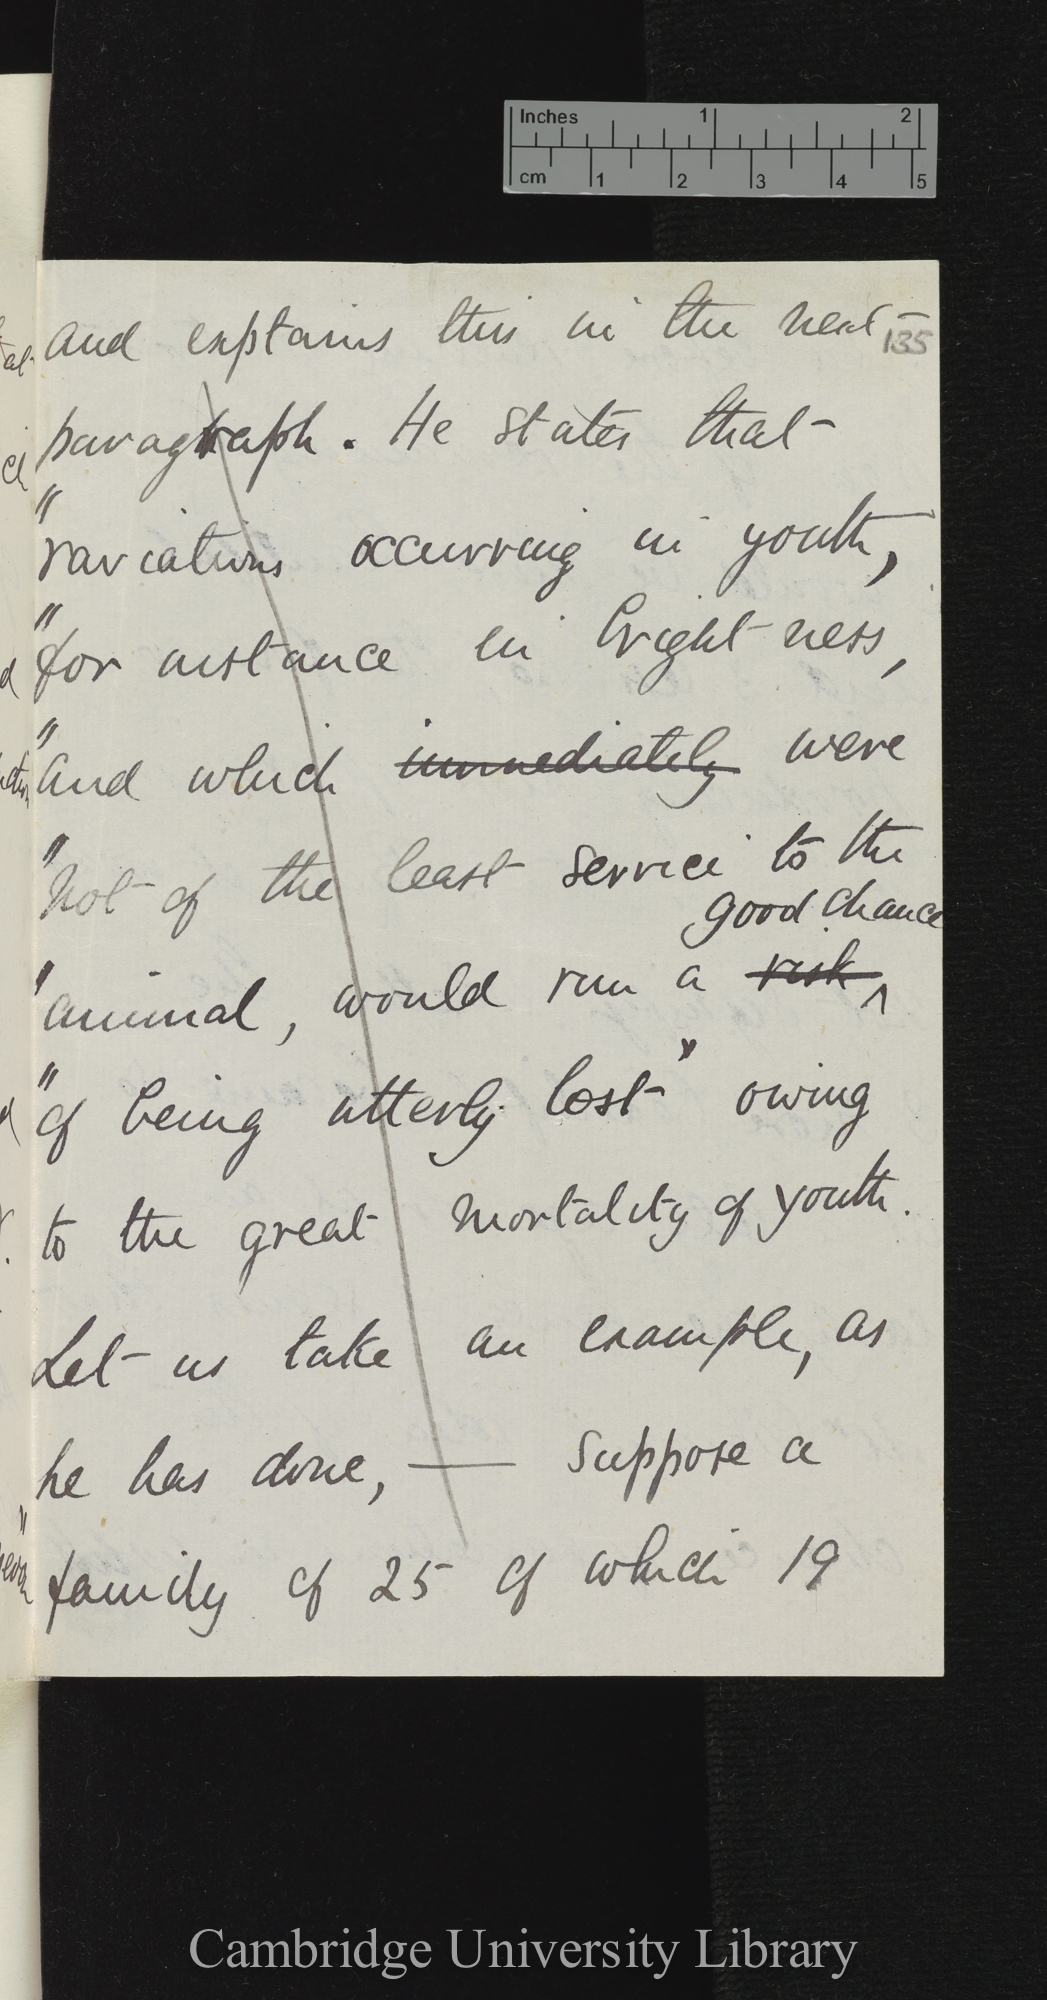 Inches 1 2
cm 1 2 3 4 5
and explains this in the next
135
paragraph. He states that
"variations occurring in youth,
"for instance in brightness,
"and which immediately were
"not of the least service to the
good chance
"animal, would run a risk ^
"of being utterly lost" owing
to the great mortality of youth.
Let us take an example, as
he has done, — suppose a
family of 25 of which 19
Cambridge University Library